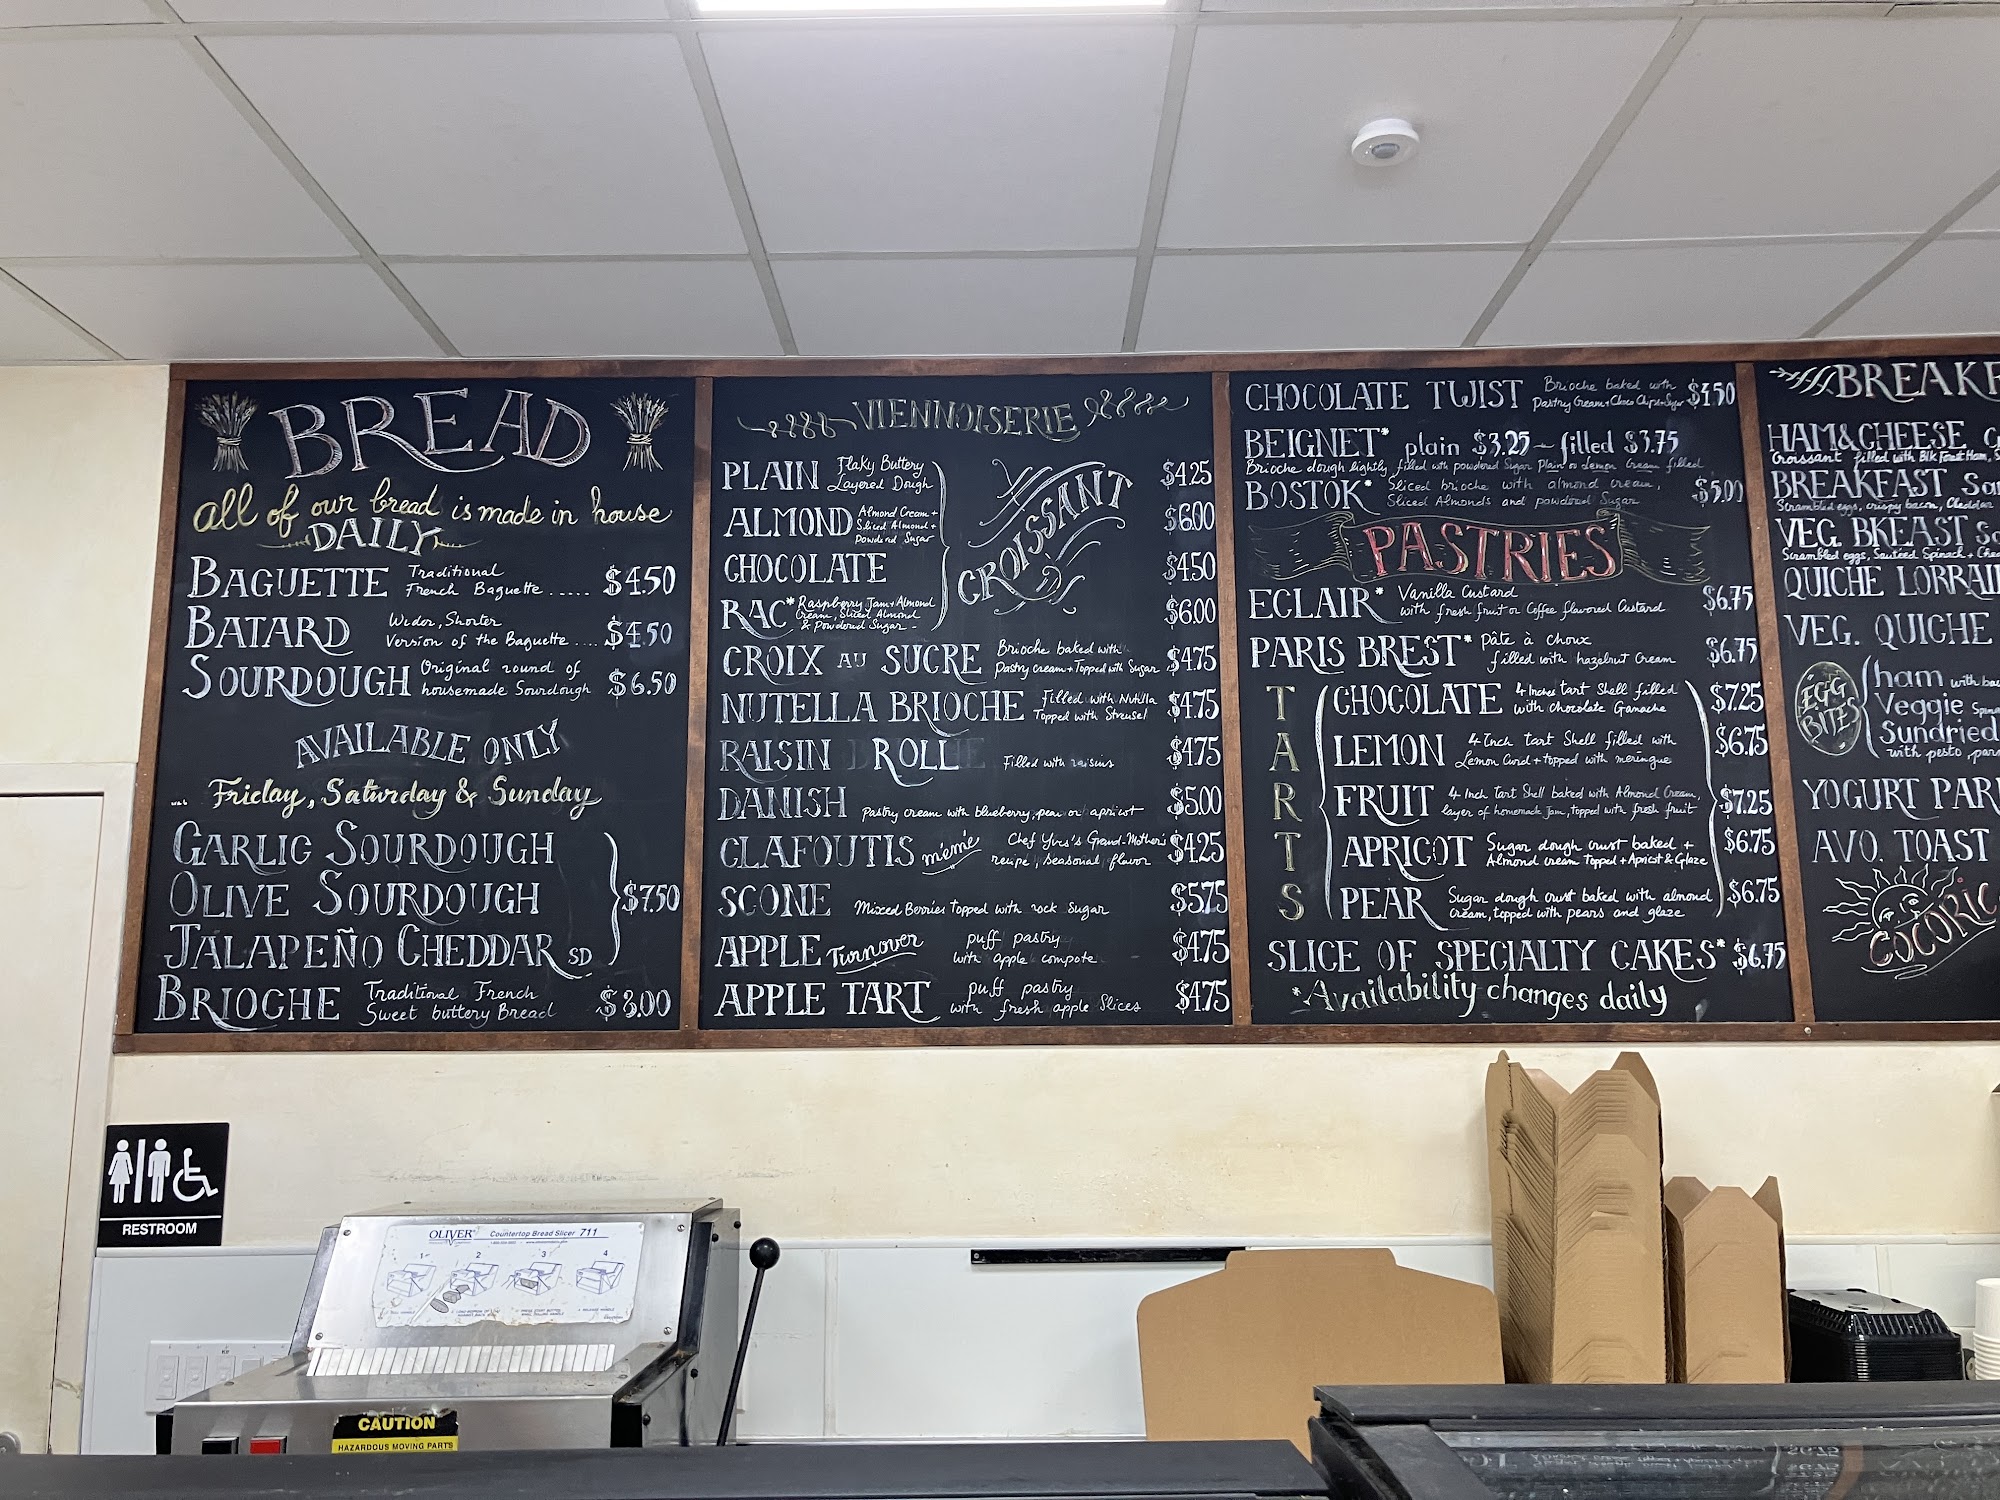 BREAD
all of our bread is made in house
DAILY
BAGUETTE Traditional French Baguette ...... $4.50
BATARD Wider, Shorter Version of the Baguette .... $4.50
SOURDOUGH Original round of housemade Sourdough $6.50
AVAILABLE ONLY
Friday, Saturday & Sunday
GARLIC SOURDOUGH
OLIVE SOURDOUGH $7.50
JALAPEÑO CHEDDAR SD
BRIOCHE Traditional French Sweet buttery Bread $8.00
VIENNOISERIE
CROISSANT
PLAIN Flaky Buttery Layered Dough $4.25
ALMOND Almond Cream + Sliced Almond + Powdered Sugar $6.00
CHOCOLATE $4.50
RAC* Raspberry Jam + Almond Cream, Sliced Almond & Powdered Sugar - $6.00
CROIX AU SUCRE Brioche baked with Pastry cream + Topped with Sugar $4.75
NUTELLA BRIOCHE filled with Nutella Topped with Streusel $4.75
RAISIN ROLL Filled with raisins $4.75
DANISH Pastry cream with blueberry, pear or apricot $5.00
CLAFOUTIS mémé Chef Yves's Grand-Mother's recipe, seasonal flavor $4.25
SCONE Mixed Berries topped with rock Sugar $5.75
APPLE Turnover puff pastry with apple compote $4.75
APPLE TART puff pastry with fresh apple Slices $4.75
CHOCOLATE TWIST Brioche baked with Pastry Cream + Choco Chips + Sugar $4.50
BEIGNET* plain $3.25 - filled $3.75
Brioche dough lightly filled with powdered Sugar Plain or Lemon Cream filled
BOSTOK* Sliced brioche with almond cream, Sliced Almonds and powdered Sugar $5.00
PASTRIES
ECLAIR* Vanilla Custard with fresh fruit or Coffee flavored Custard $6.75
PARIS BREST* Pâte à Choux filled with hazelnut Cream $6.75
TARTS
CHOCOLATE 4 Inches tart Shell filled with chocolate Ganache $7.25
LEMON 4 Inch tart Shell filled with Lemon Curd + topped with meringue $6.75
FRUIT 4 Inch Tart Shell baked with Almond Cream, layer of homemade Jam, topped with fresh fruit $7.25
APRICOT Sugar dough crust baked + Almond cream topped + Apricot & Glaze $6.75
PEAR Sugar dough crust baked with almond Cream, topped with pears and glaze $6.75
SLICE OF SPECIALTY CAKES* $6.75
*Availability changes daily
BREAKF
HAM & CHEESE C
Croissant filled with Blk Forest Ham, S
BREAKFAST Sa
Scrambled eggs, crispy bacon, Cheddar
VEG. BKEAST Sa
Scrambled eggs, Sauteed Spinach + Chee
QUICHE LORRAI
VEG. QUICHE
EGG BITES
ham with bac
Veggie Spina
Sundried
with pesto, par
YOGURT PAR
AVO. TOAST
COCORIC
RESTROOM
OLIVER Countertop Bread Slicer 711
1 2 3 4
CAUTION
HAZARDOUS MOVING PARTS